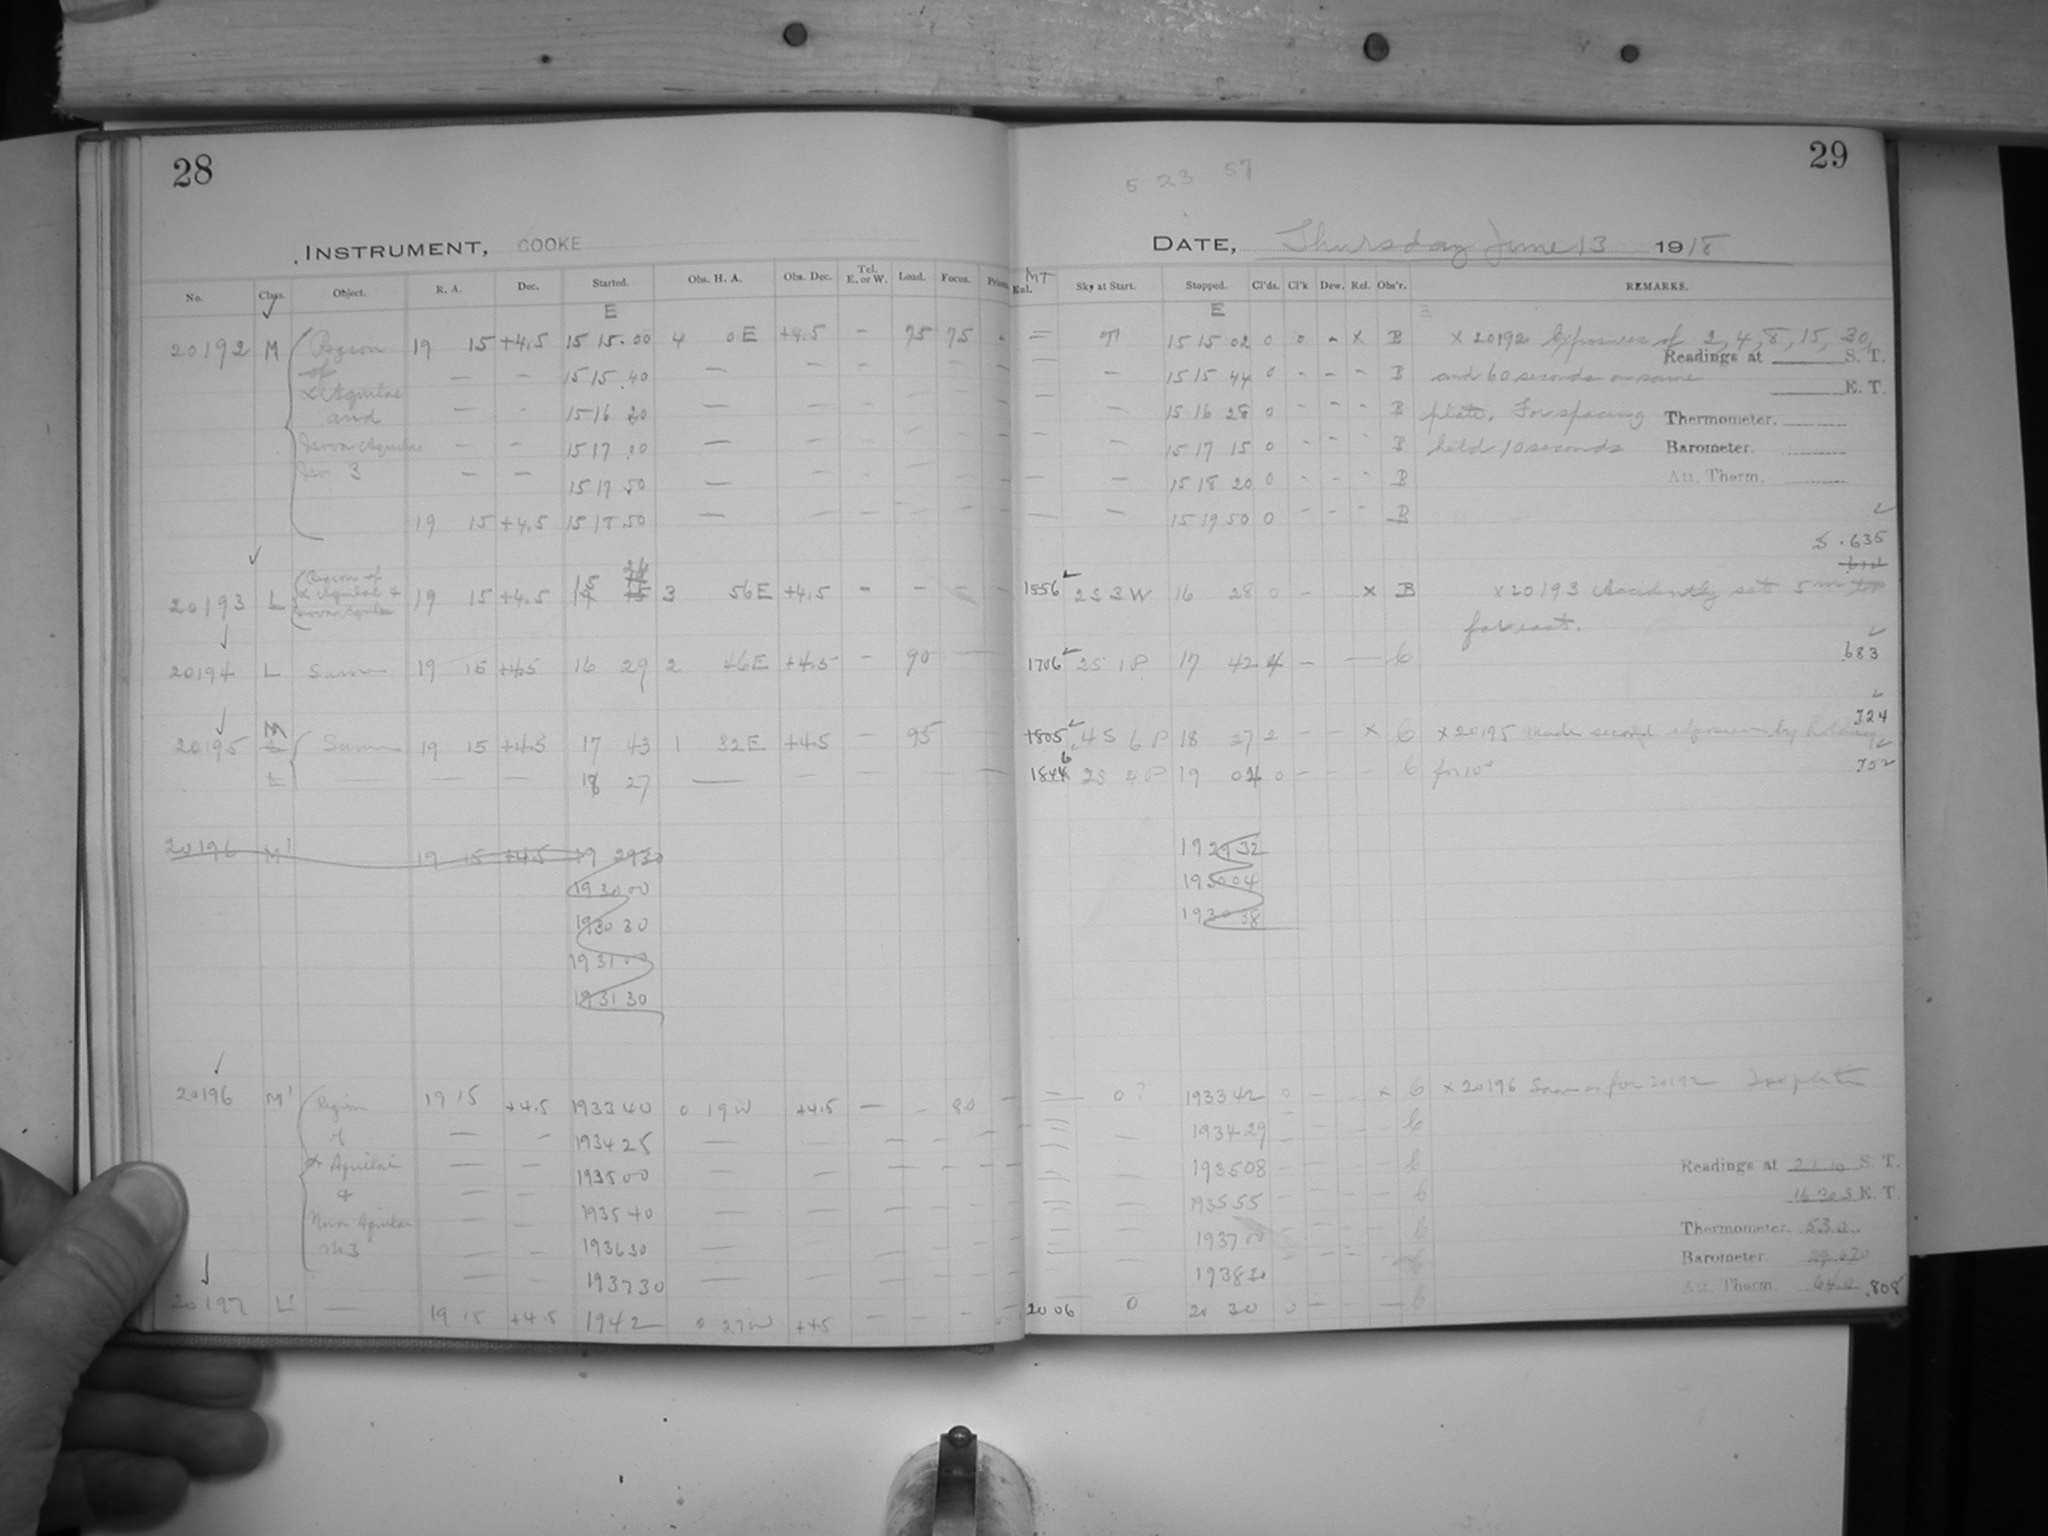 28
INSTRUMENT, COOKE
No. Class. Object. R. A. Dec. Started. Obs. H. A. Obs. Dec. Tel. E. or W. Load. Focus.
E
20192 M Region 19 15 +4.5 15 15.00 4 0E +4.5 – 75 75
of — – 15 15.40 —
α Aquilae — – 15 16 20 —
and
Nova Aquilae — – 15 17 00 —
No 3 — — 15 17 50 —
19 15 +4.5 15 18.50 —
20193 L Region of α Aquilae & Nova Aquilae 19 15 +4.5 15 3 56E +4.5 – – –
20194 L Same 19 15 +4.5 16 29 2 46E +4.5 – 90 —
20195 M Same 19 15 +4.5 17 43 1 32E +4.5 – 95
L — — — 18 27 —
20196 M' 19 15 +4.5 19 29 30
19 30 00
19 30 30
19 31 00
19 31 30
20196 M' Region 19 15 +4.5 19 33 40 0 19W +4.5 — – 80
of — – 19 34 25 —
α Aquilae — — 19 35 00 —
& — — 19 35 40 —
Nova Aquilae — — 19 36 30 —
No 3 — — 19 37 30 —
20197 L' — 19 15 +4.5 19 42 0 27W +4.5 — –
29
5 23 57
DATE, Thursday June 13 1918
MT
Ext. Sky at Start. Stopped. Cl'ds. Cl'k Dew. Ref. Obs'r. REMARKS.
E
15 15 02 0 0 - x B x 20192 Exposures of 2, 4, 8, 15, 30,
Readings at S. T.
15 15 44 0 - - - B and 60 seconds on same
E. T.
15 16 28 0 - - - B plate. For spacing Thermometer.
15 17 15 0 - - - B held 10 seconds Barometer.
15 18 20 0 - - - B Att. Therm.
15 19 50 0 - - - B
.635
1556 2S 3W 16 28 0 - x B x 20193 Accidently set 5m too
far east.
1706 2S 1P 17 42 4 – — 6 .683
1805 4S 6P 18 27 2 – – x 6 x 20195 Made second exposure by holding .724
1844 2S 4P 19 04 0 – – – 6 for 10s .752
19 29 32
19 30 04
19 30 38
— 0? 19 33 42 0 – – x 6 x 20196 Same as for 20192 Iso plate
19 34 29 6
19 35 08 6
Readings at S. T.
19 35 55 6
16 30 5 E. T.
19 37 00 6
Thermometer. 53.0
Barometer.
19 38 30 6
Att. Therm. .808
2006 0 20 30 0 – – — 6